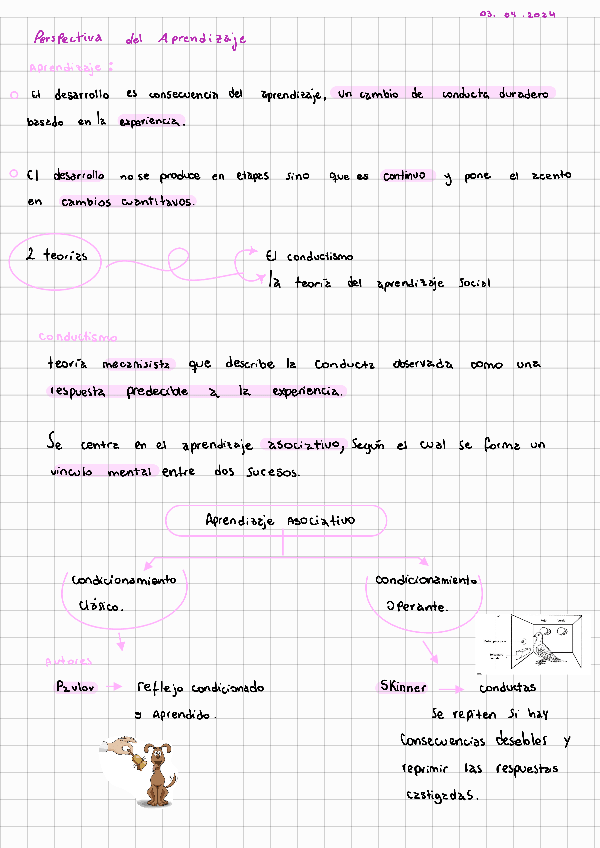 03. 04. 2024
Perspectiva del Aprendizaje
Aprendizaje:
El desarrollo es consecuencia del aprendizaje, un cambio de conducta duradero
basado en la experiencia.
El desarrollo no se produce en etapas sino que es continuo y pone el acento
en cambios cuantitavos.
2 teorías
El conductismo
la teoría del aprendizaje social
Conductismo
teoría mecanisista que describe la conducta observada como una
respuesta predecible a la experiencia.
Se centra en el aprendizaje asociativo, según el cual se forma un
vinculo mental entre dos sucesos.
Aprendizaje Asociativo
Condicionamiento
Clásico.
Condicionamiento
Operante.
Autores
Pavlov → reflejo condicionado
y Aprendido.
Skinner → conductas
se repiten si hay
consecuencias desebles y
reprimir las respuestas
castigadas.